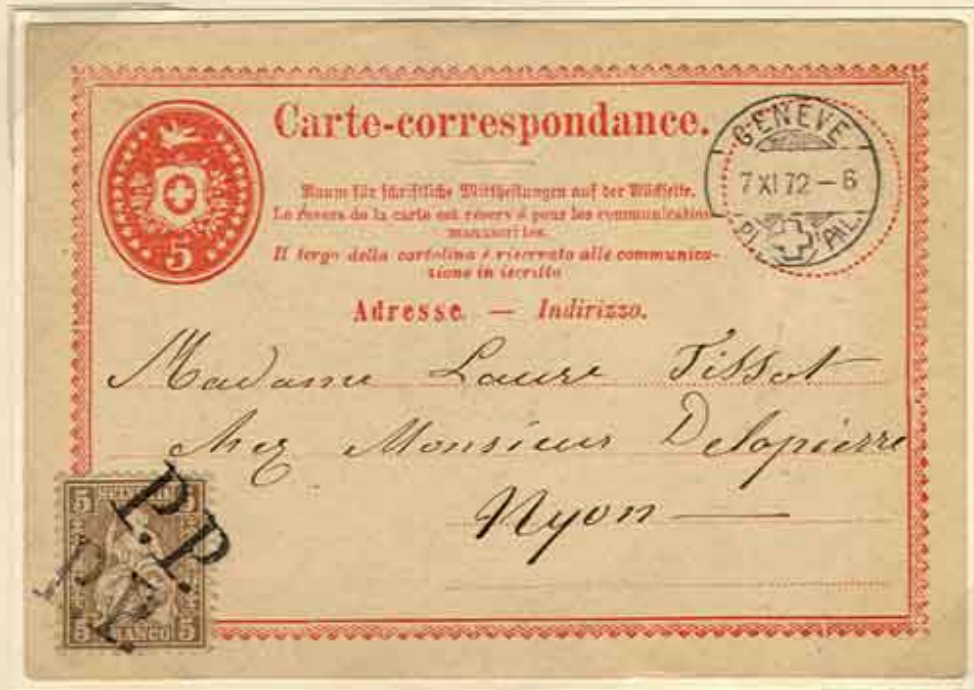 Carte-correspondance.
Raum für schriftliche Mittheilungen auf der Rückseite.
Le revers de la carte est réservé pour les communications
manuscrites.
Il tergo della cartolina è riservato alle communica-
zione in iscritto
Adresse. — Indirizzo.
5
GENEVE
7 XI 72 - 6
PL. PAL.
Madame Laure Tissot
chez Monsieur Delapierre
Nyon
5 5
P.P.
P.P.
5 FRANCO 5